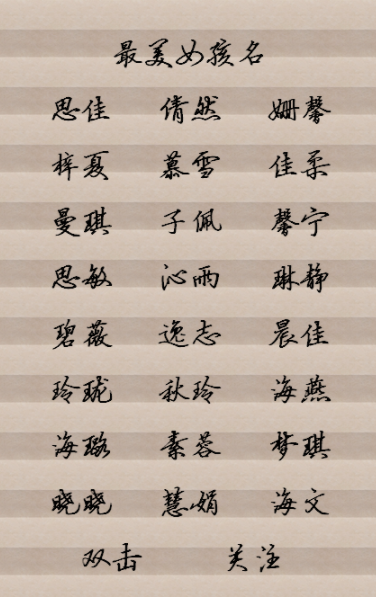 最美女孩名
思佳 倩然 姗馨
梓夏 慕雪 佳柔
曼琪 子佩 馨宁
思敏 沁雨 琳静
碧薇 逸志 晨佳
玲珑 秋玲 海燕
海璐 素蓉 梦琪
晓晓 慧娟 海文
双击 关注